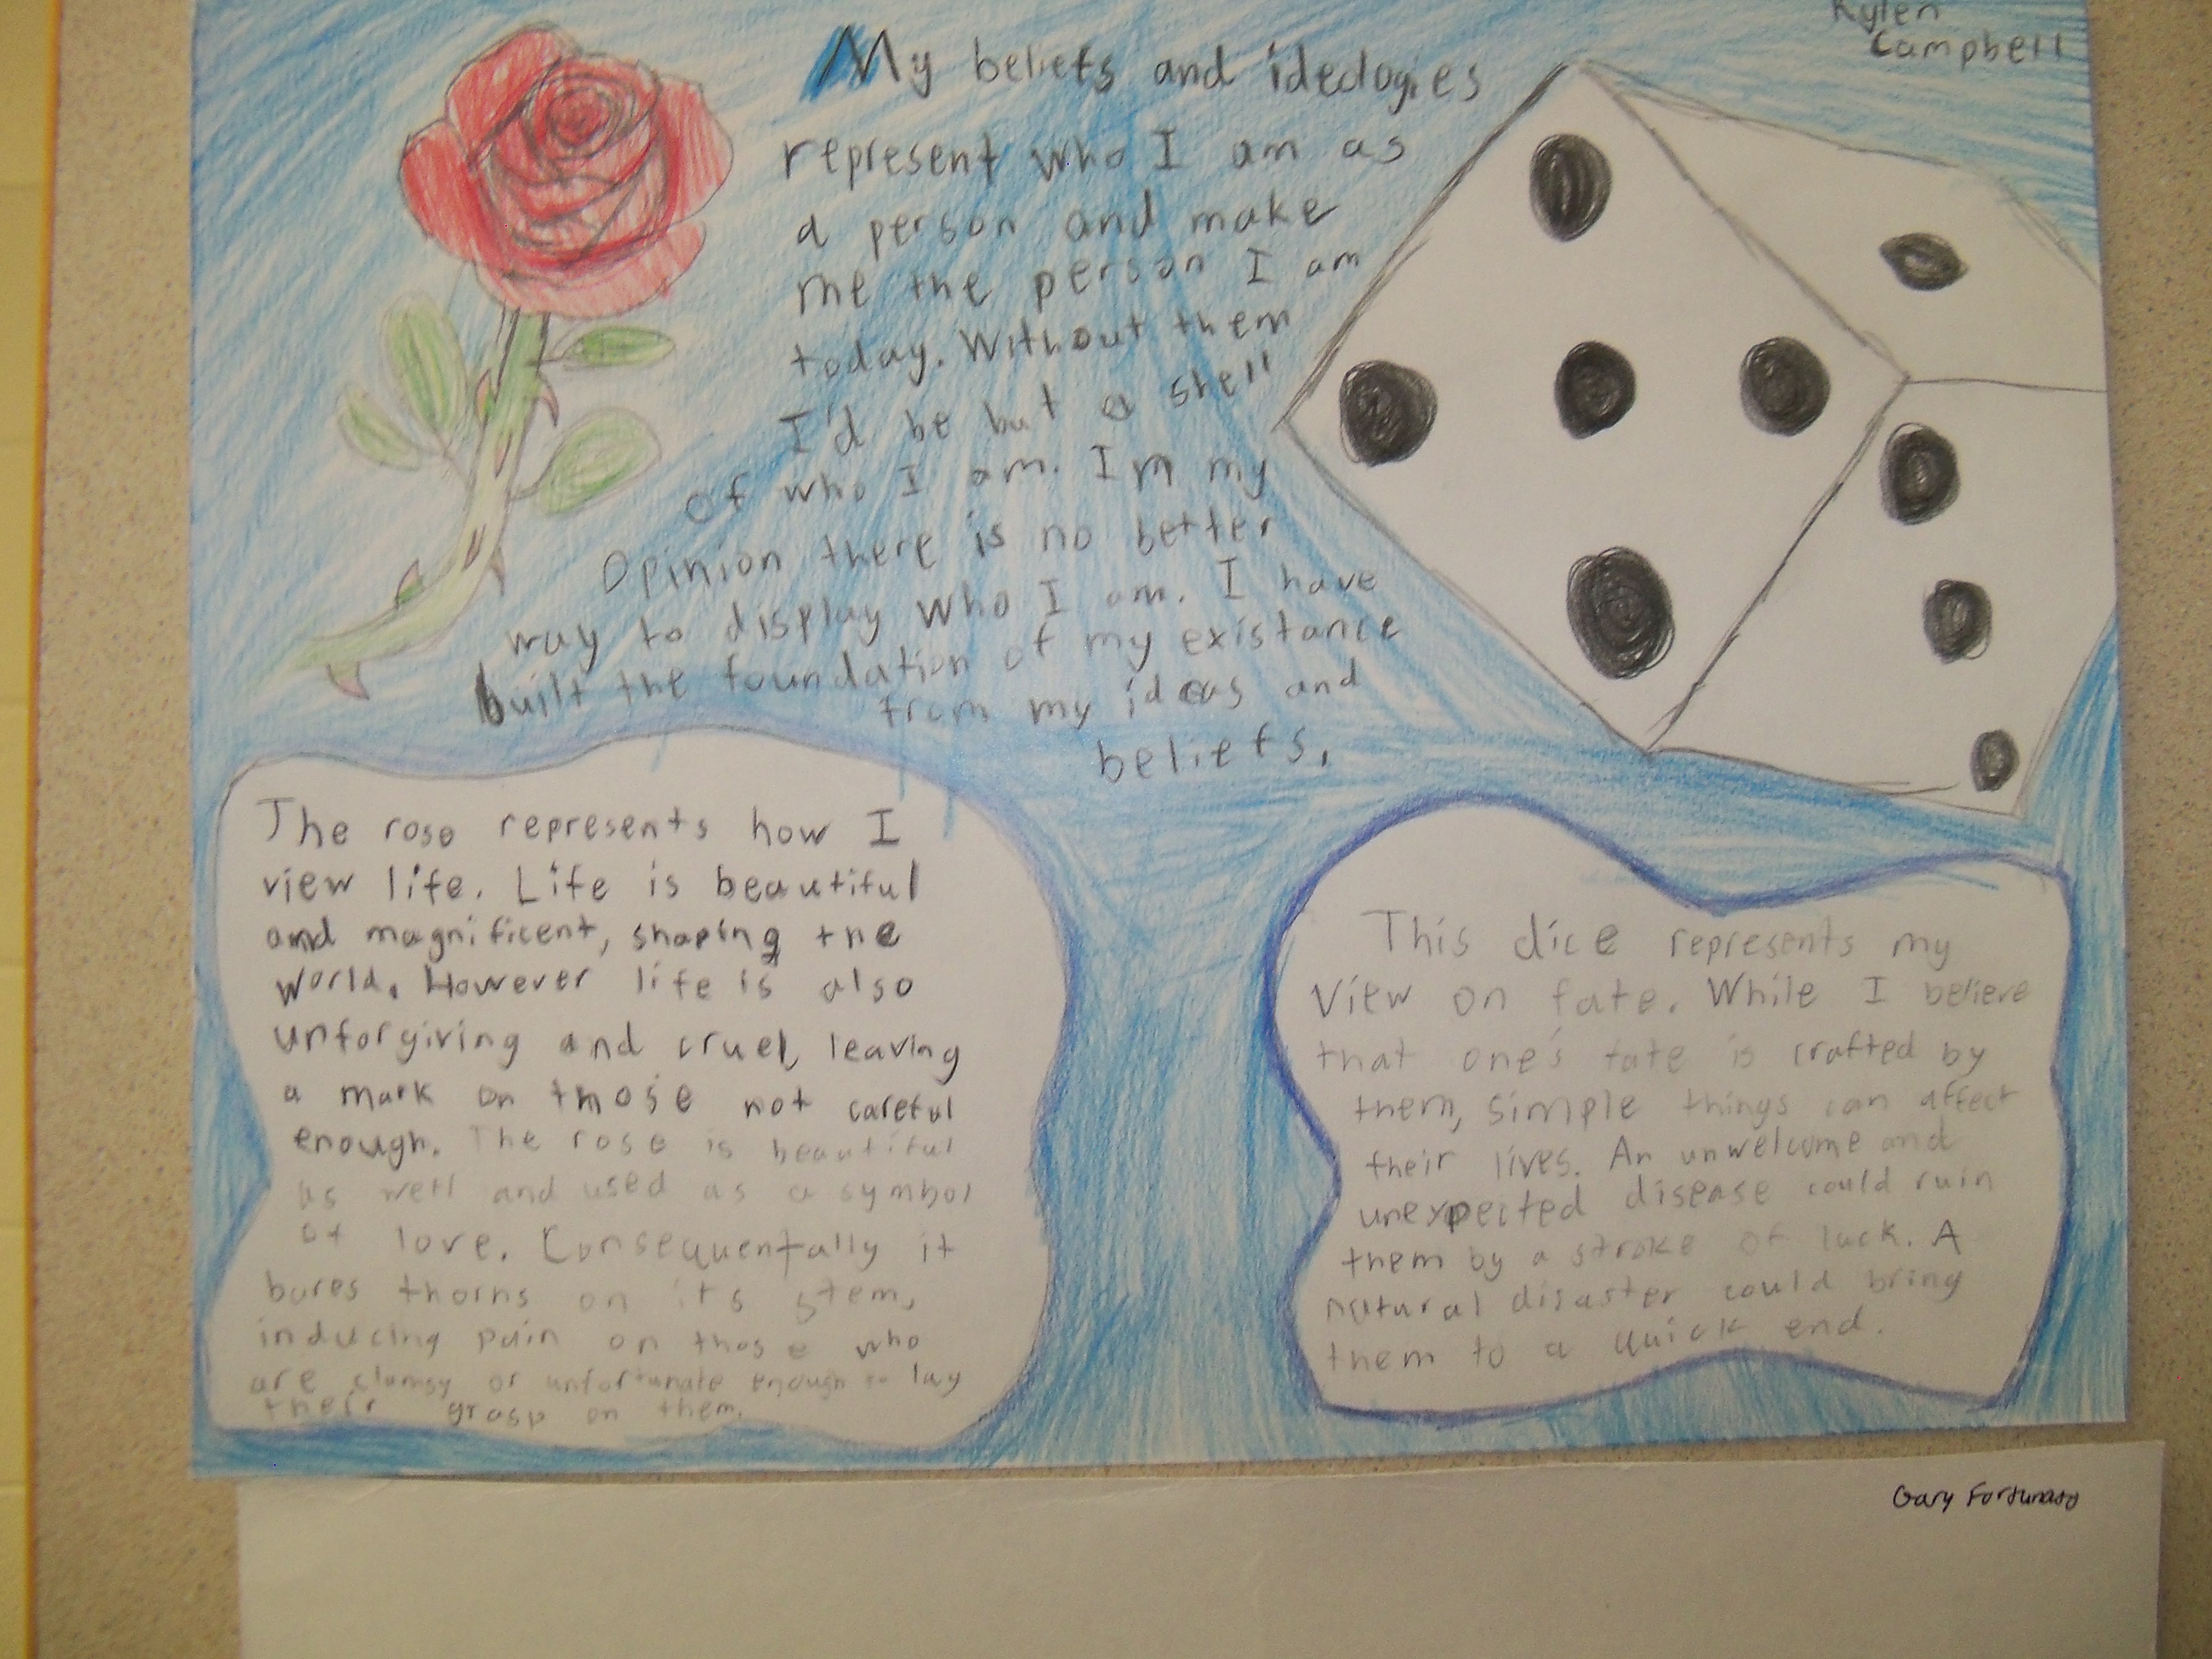 Kylen
Campbell
My beliefs and ideologies
represent who I am as
a person and make
me the person I am
today. Without them
I'd be but a shell
of who I am. Im my
Opinion there is no better
way to display who I am. I have
built the foundation of my existance
from my ideas and
beliefs.
The rose represents how I
view life. Life is beautiful
and magnificent, shaping the
world. However life is also
unforgiving and cruel, leaving
a mark on those not careful
enough. The rose is beautiful
as well and used as a symbol
of love. Consequentally it
bares thorns on its stem,
inducing pain on those who
are clumsy or unfortunate enough to lay
their grasp on them.
This dice represents my
view on fate. While I believe
that one's fate is crafted by
them, simple things can affect
their lives. An unwelcome and
unexpected disease could ruin
them by a stroke of luck. A
natural disaster could bring
them to a quick end.
Gary Fortunato